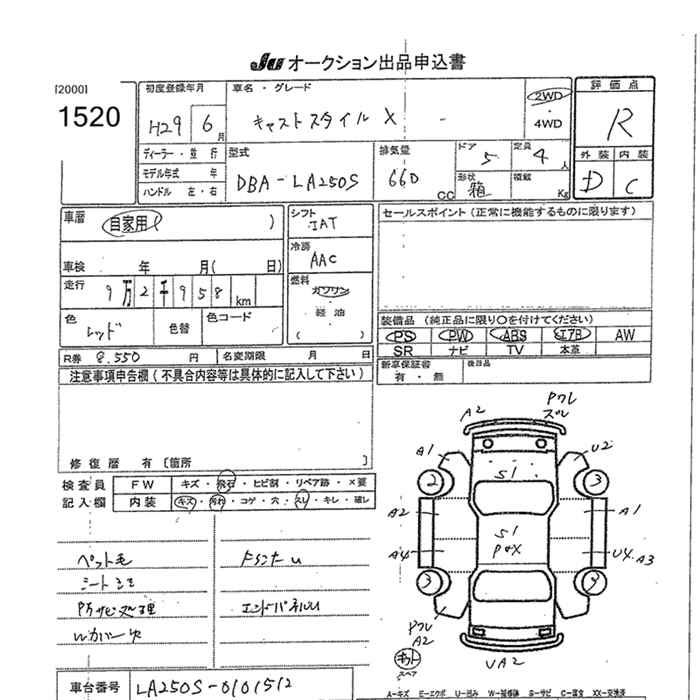 JU オークション出品申込書
[2000]
1520
初度登録年月
H29 6 月
車名・グレード
キャスト スタイル X
2WD
・
4WD
評価点
R
ディーラー・並行
モデル年式 年
ハンドル 左・右
型式
DBA-LA250S
排気量
660 cc
ドア
5
定員
4 人
形状
箱
積載
Kg
外装 内装
D C
車歴
自家用 ( )
シフト
IAT
セールスポイント (正常に機能するものに限ります)
冷房
AAC
車検 年 月( 日)
走行
9万2千958 km
燃料
ガソリン
軽油
( )
色
レッド
色替
色コード
装備品 (純正品に限り○を付けてください)
PS PW ABS エアB AW
SR ナビ TV 本革
R券 8,550 円
名変期限 月 日
新車保証書
有・無
後日品
注意事項申告欄 (不具合内容等は具体的に記入して下さい)
修復歴 有〔箇所 〕
検査員
記入欄
FW キズ・飛石・ヒビ割・リペア跡・×要
内装 キズ・汚れ・コゲ・穴・スレ・キレ・破レ
ペット毛
シートシミ
防サビ処理
エンドパネルU
A2
A1
U2
S1
2
3
A2
A1
S1
A4
U4 A3
3
A2
キット
スペア
UA2
車台番号 LA250S-0101512
A-キズ E-エクボ U-凹み W-補修跡 S-サビ C-腐食 XX-交換済